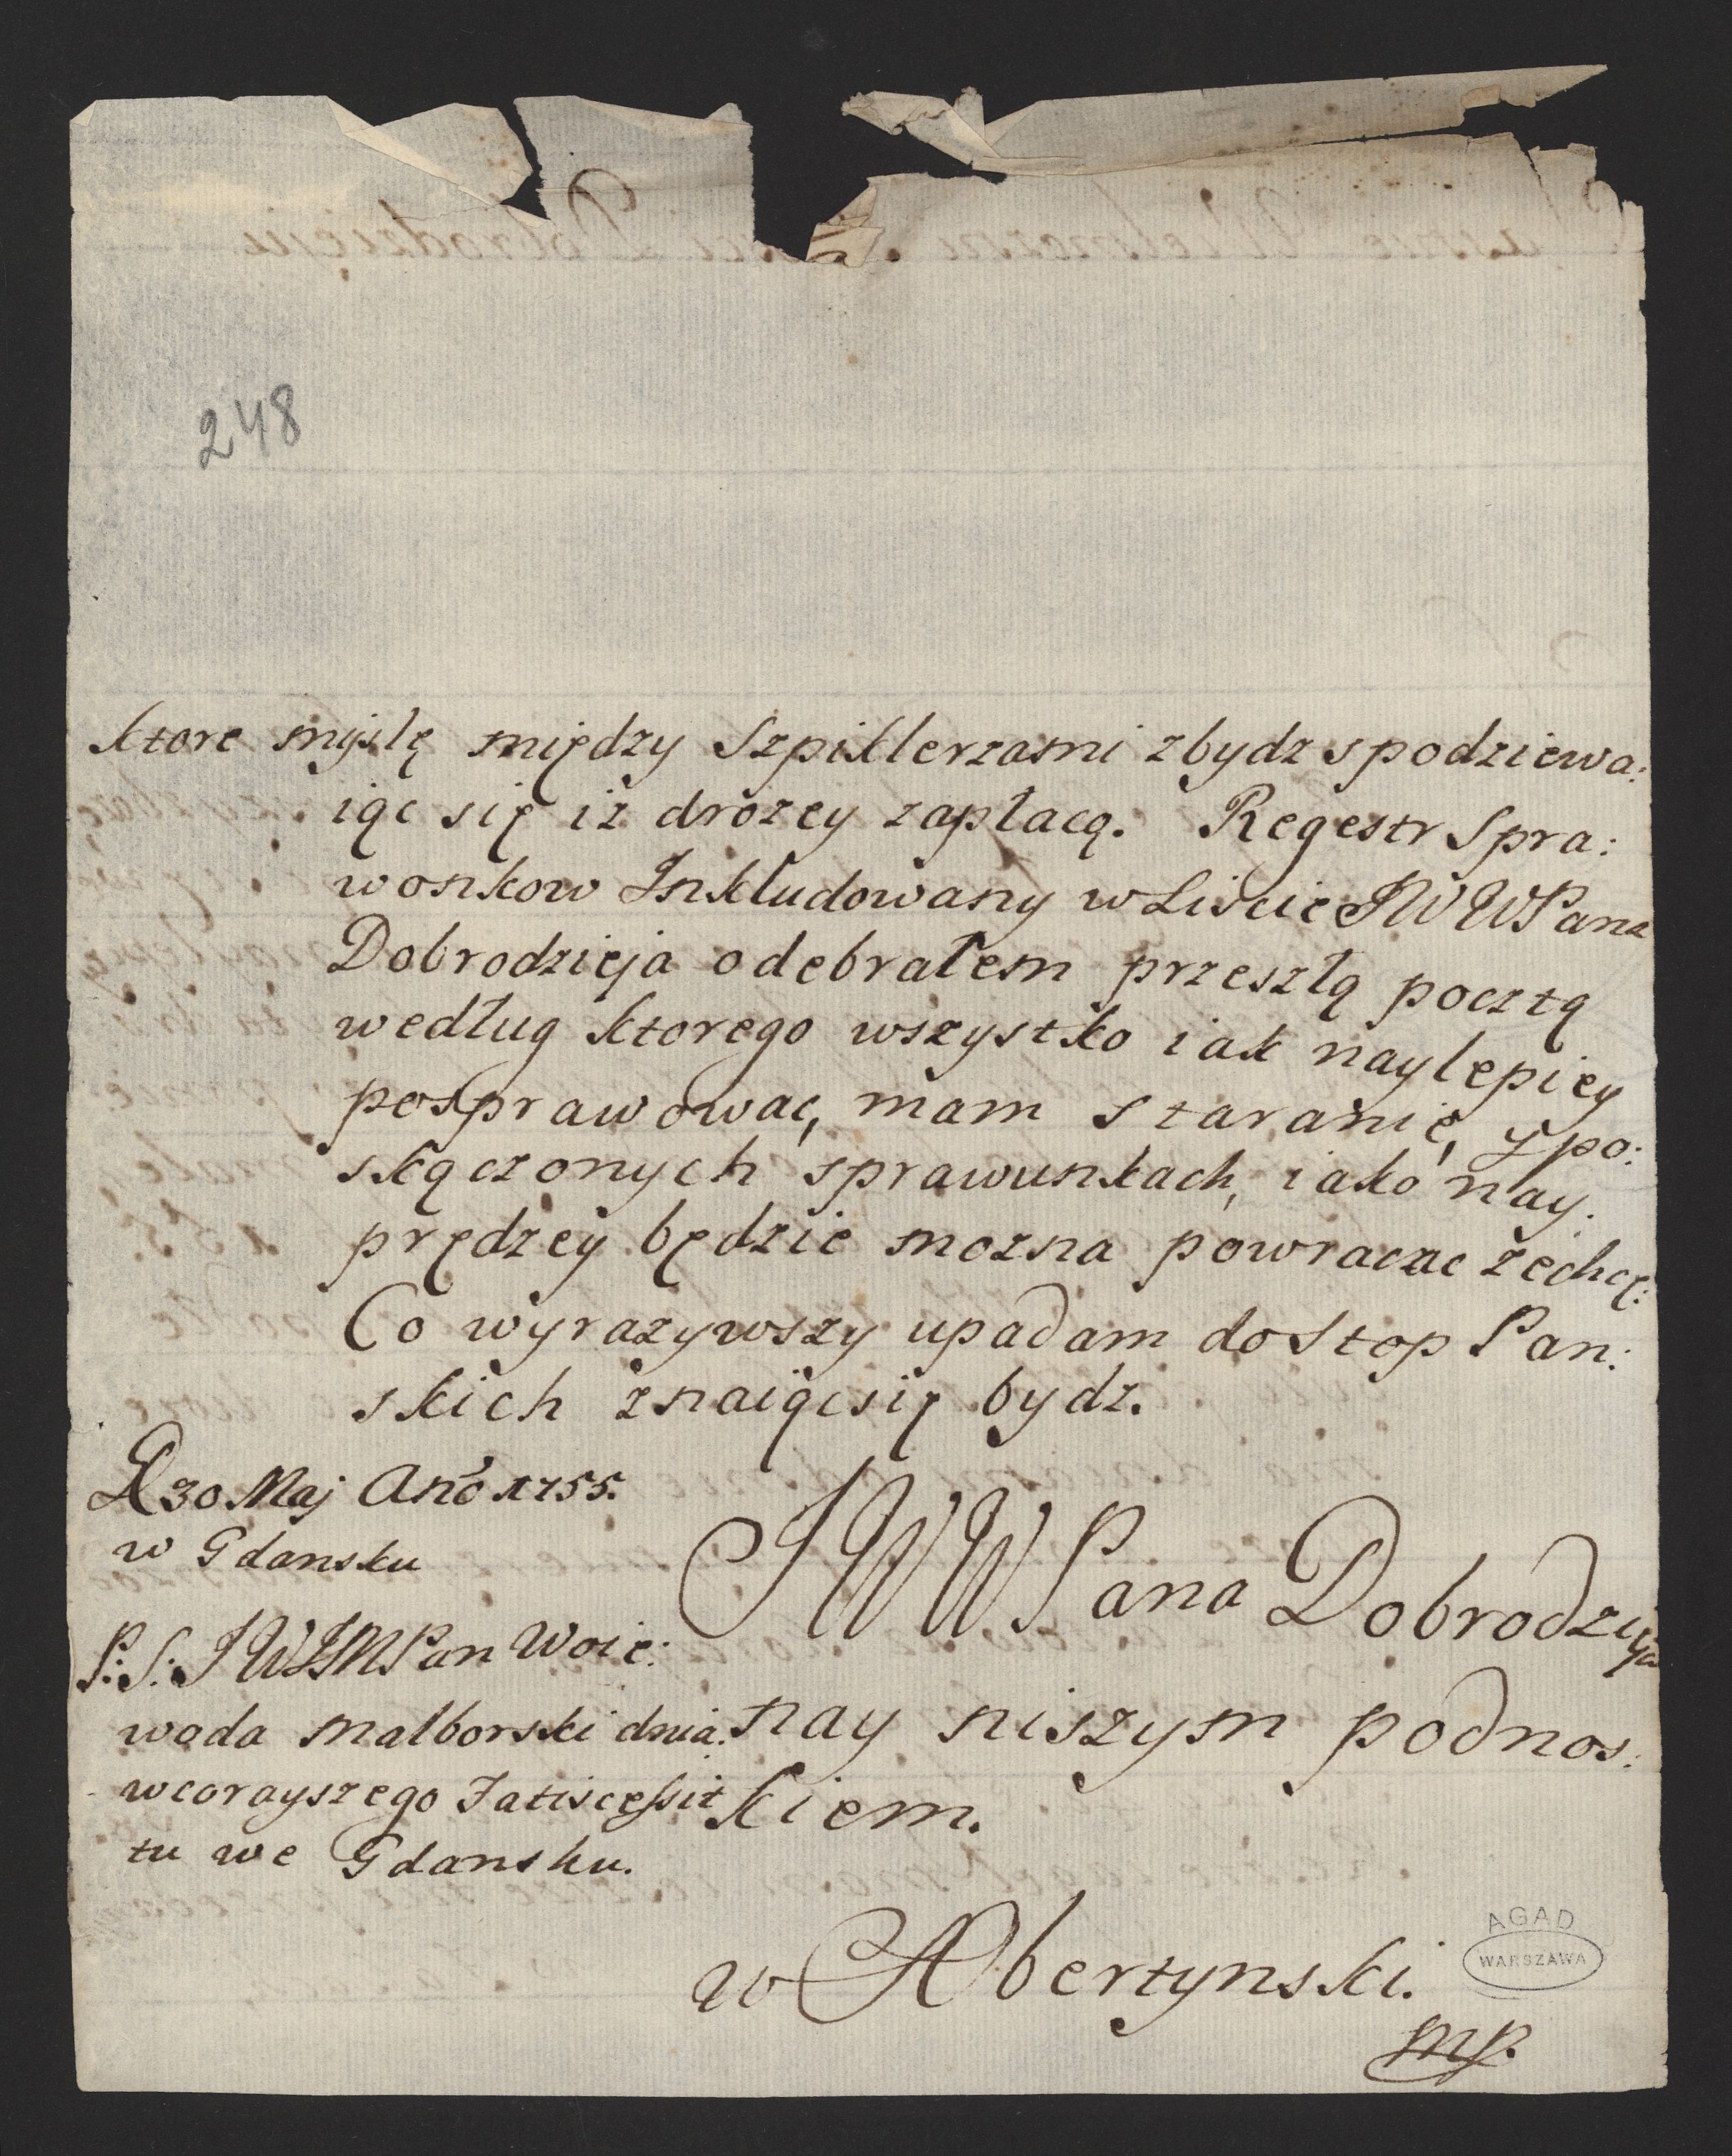 248
ktore myslę między Szpiklerzami zbydz spodziewa:
iąc się iż drozey zapłacą. Regestr Spra:
wonkow Inkludowany w Liscie JWWPana
Dobrodzieja odebrałem przeszłą pocztą
według ktorego wszystko iak naylepiey
posprawować, mam staranie, y po:
skączonych sprawunkach, iako nay:
prędzey będzie mozna powracac zechcę:
Co wyrazywszy upadam do Stop Pan:
skich znaiąc się bydz.
D 30 Maj Anõ 1755.
w Gdansku
JWWPana Dobrodzieja
nay niszym podnos:
kiem.
P: S: JWJMPan Woie:
woda Malborski dnia
wcorayszego Fatiscessit
tu we Gdansku.
w Abertynski.
mp.
AGAD
WARSZAWA